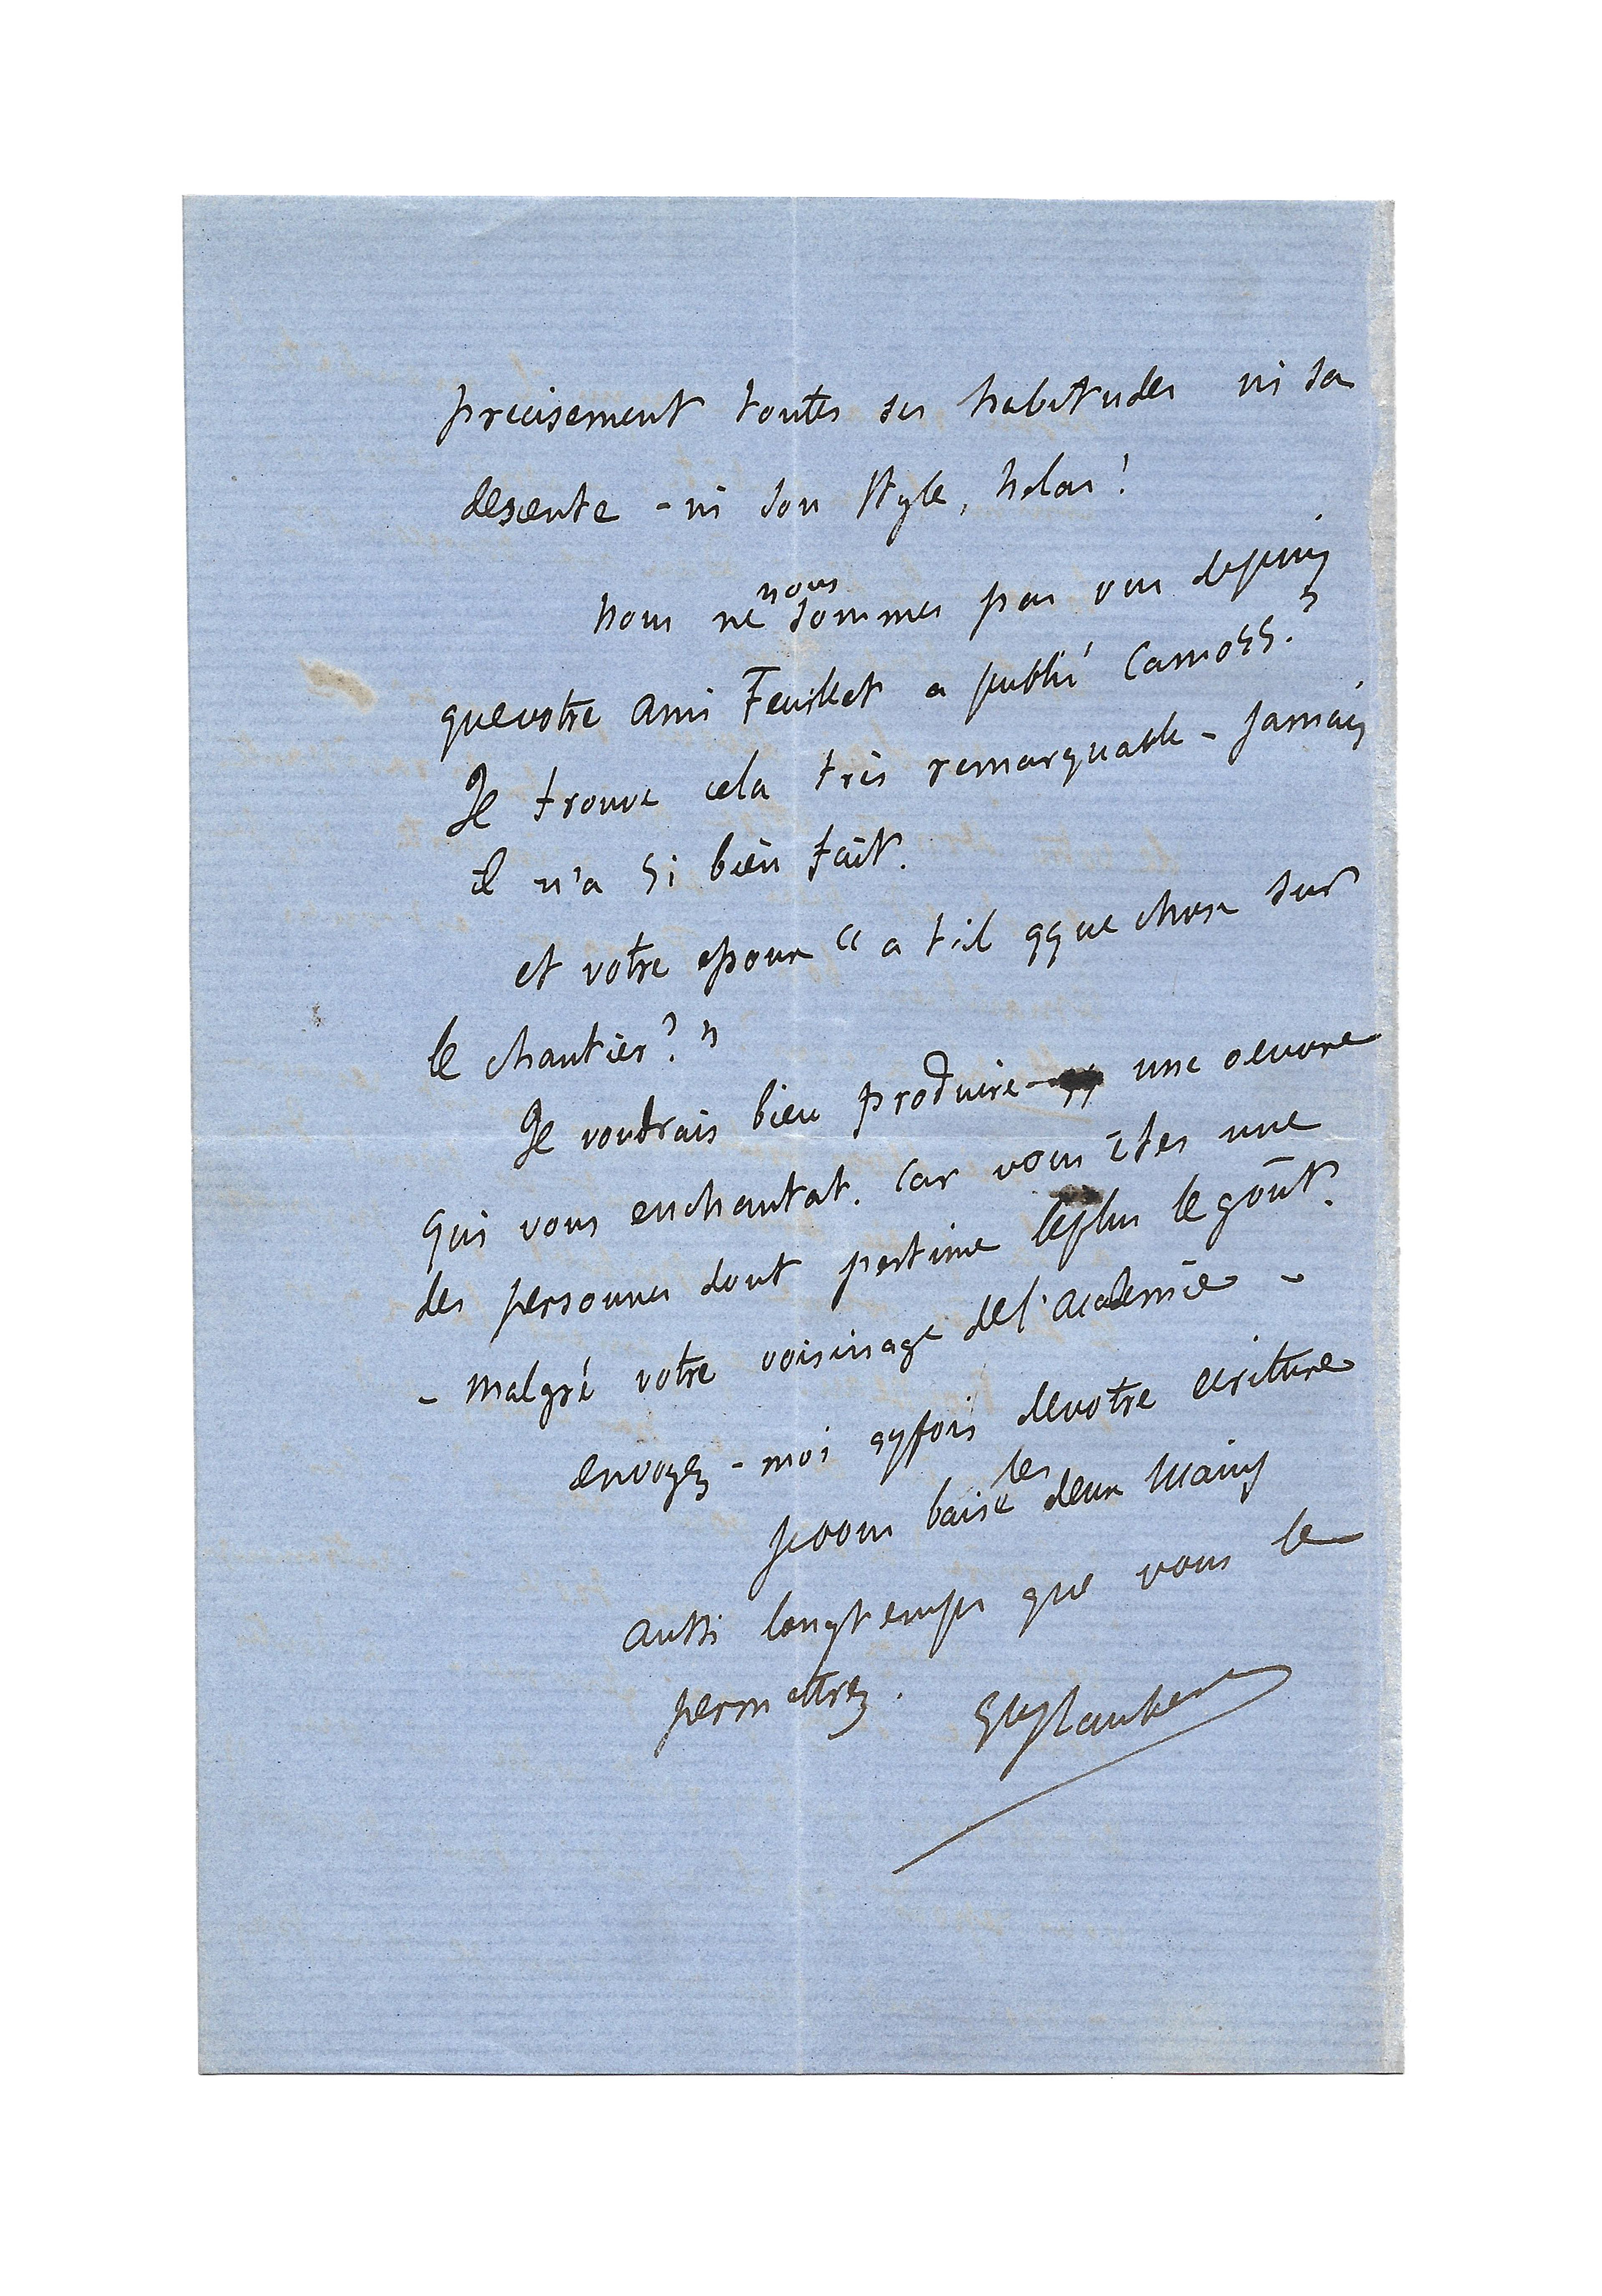 precisement toutes ses habitudes ni sa
descente - ni son style, helas!
nous ne nous sommes pas vus depuis
que votre ami Feuillet a publié Camors.
Je trouve cela très remarquable - jamais
il n'a si bien fait.
et votre epoux "a t'il qque chose sur
le chantier?"
Je voudrais bien produire une oeuvre
qui vous enchantat. Car vous êtes une
des personnes dont j'estime le plus le goût.
- malgré votre voisinage de l'academie -
envoyez-moi qqfois de votre ecriture
je vous baise les deux mains
aussi longtemps que vous le
permettrez.
Gve Flaubert